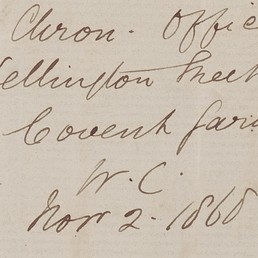 Chron. Offic
ellington Street
Covent Gar
W.C.
Nov 2. 1868